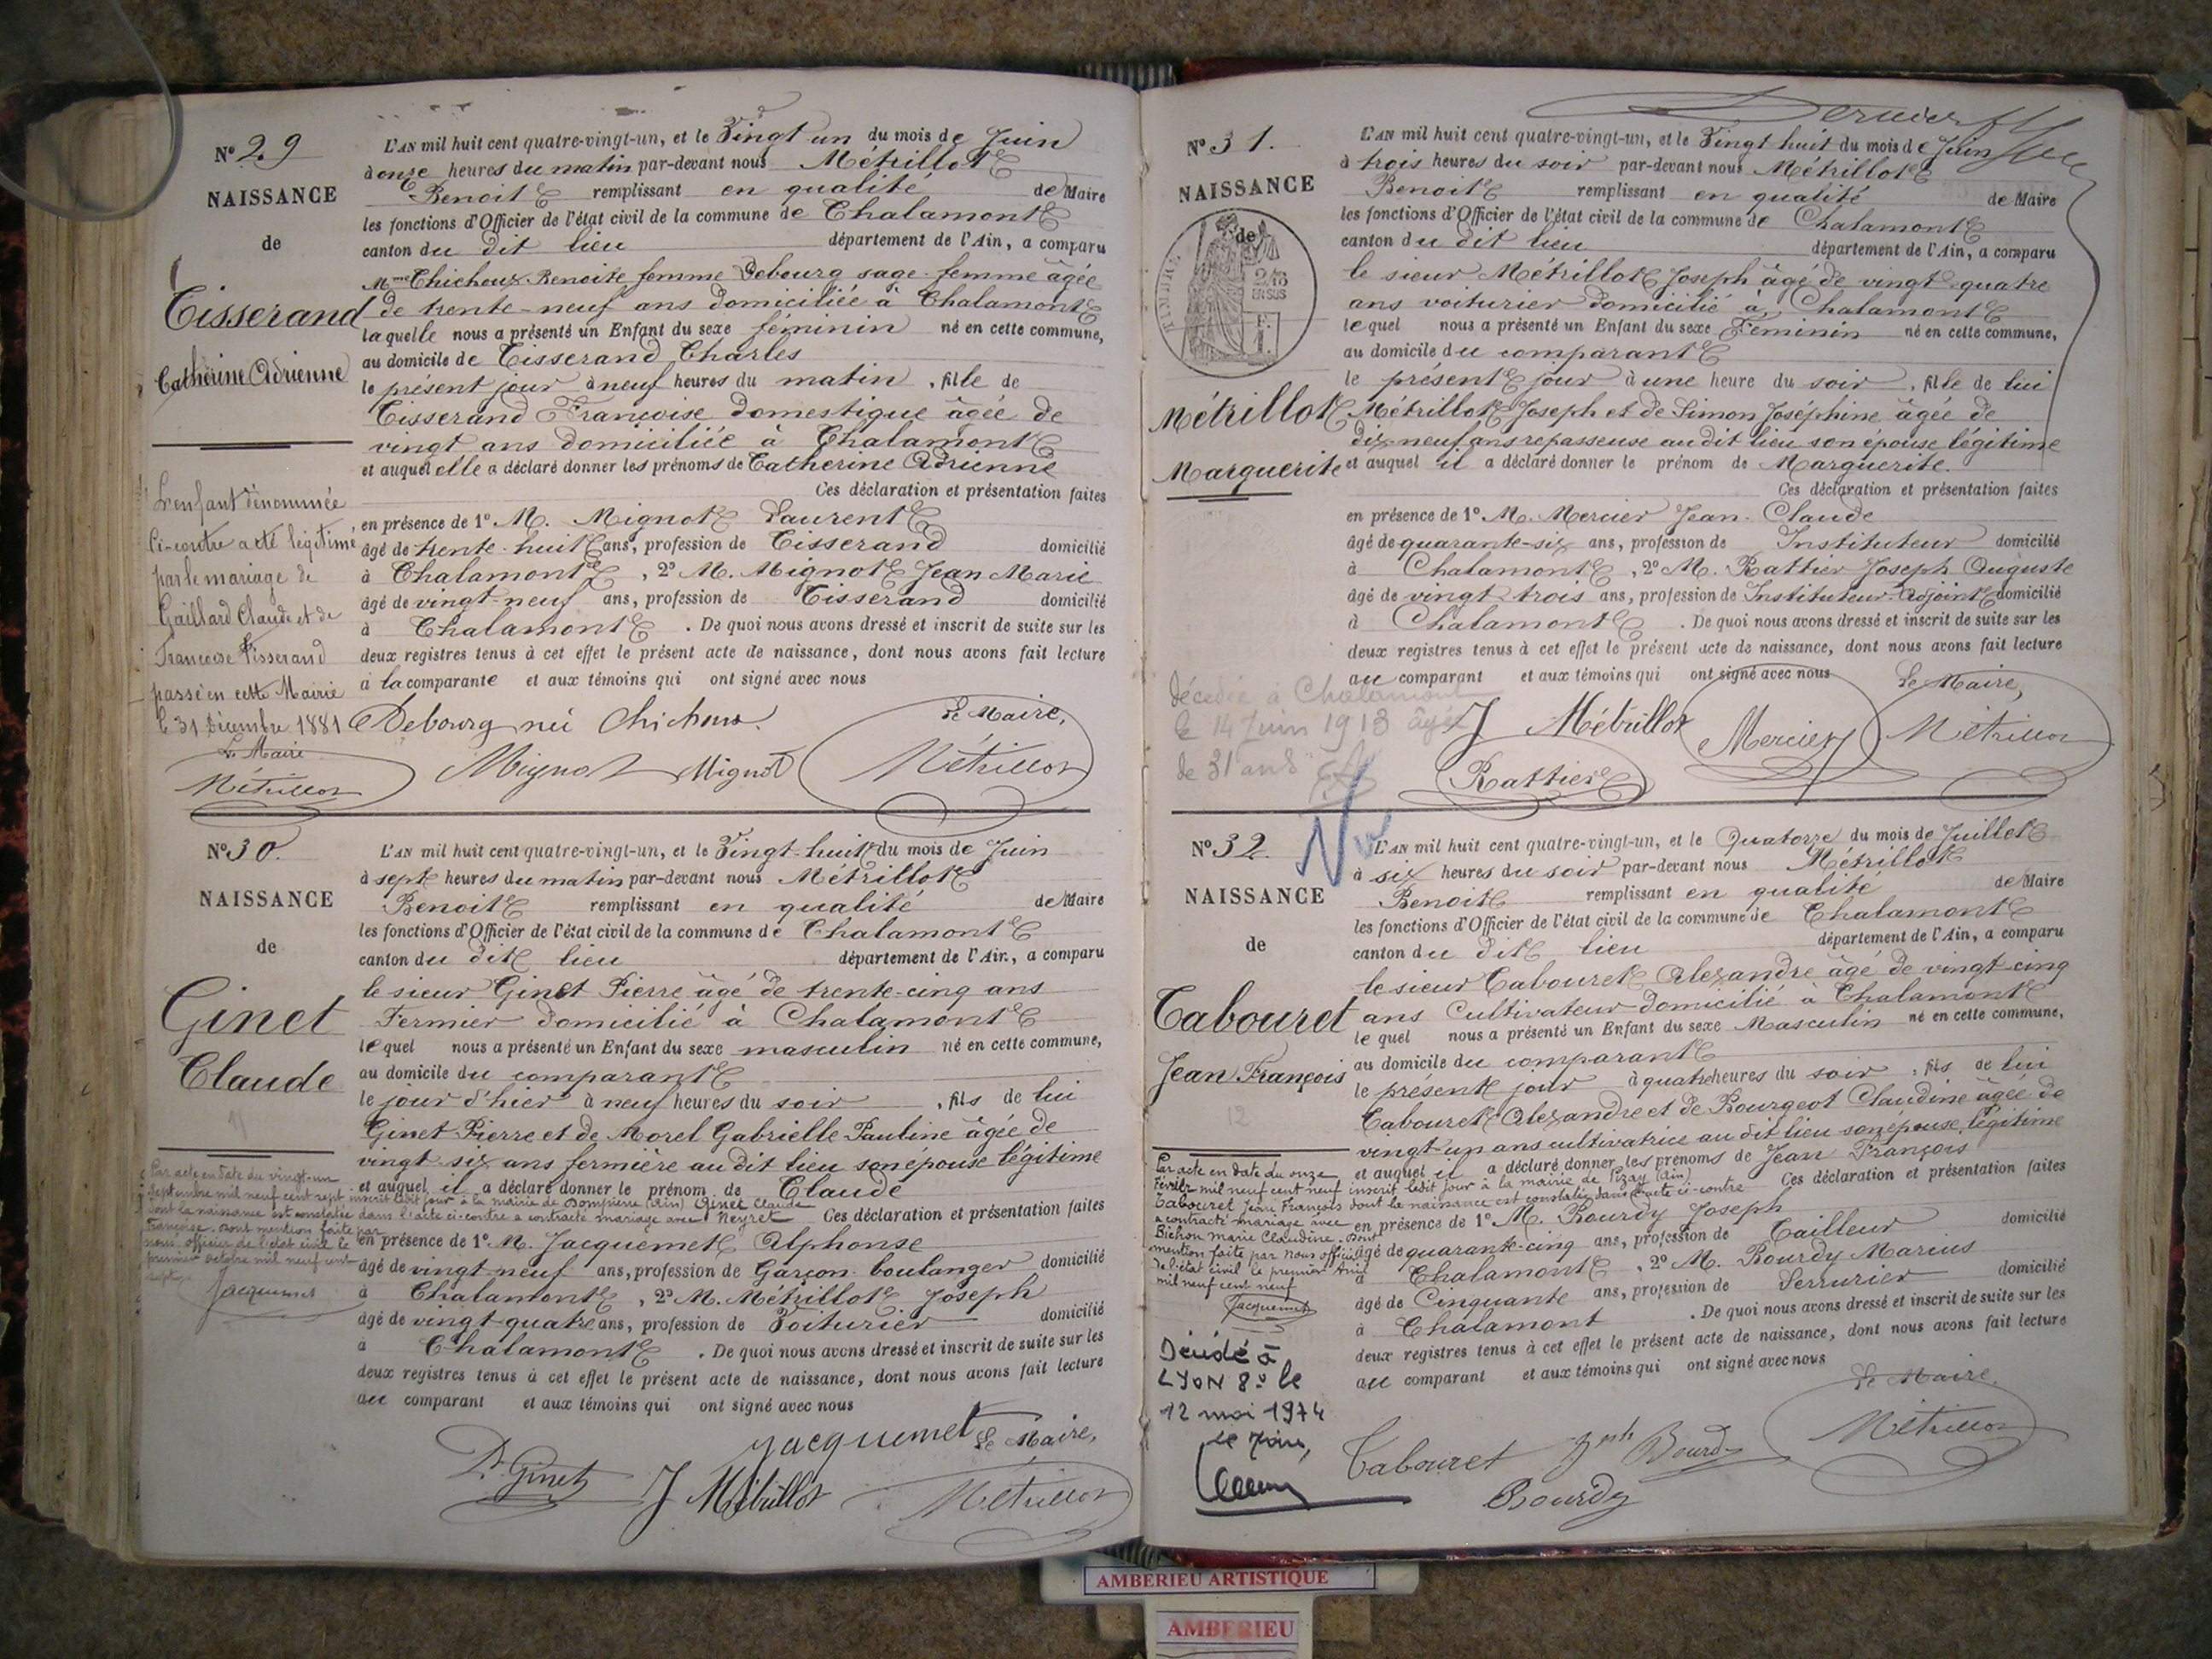 N° 29
NAISSANCE
de
Tisserand
Catherine Adrienne
L'enfant dénommée
Ci-contre a été légitimé
par le mariage de
Gaillard Claude et de
Francoise Tisserand
passé en cette Mairie
le 31 Décembre 1881
Le Maire
Métrillot
L'AN mil huit cent quatre-vingt-un, et le Vingt un du mois de Juin
à onze heures du matin par-devant nous Métrillot
Benoit remplissant en qualité de Maire
les fonctions d'Officier de l'état civil de la commune de Chalamont
canton du dit lieu département de l'Ain, a comparu
Mme Chicheux Benoite femme Debourg sage-femme âgée
de trente-neuf ans domiciliée à Chalamont
laquelle nous a présenté un Enfant du sexe féminin né en cette commune,
au domicile de Tisserand Charles
le présent jour à neuf heures du matin, fille de
Tisserand Françoise domestique âgée de
vingt ans domiciliée à Chalamont
et auquel elle a déclaré donner les prénoms de Catherine Adrienne
Ces déclaration et présentation faites
en présence de 1° M. Mignot Laurent
âgé de trente-huit ans, profession de Tisserand domicilié
à Chalamont, 2° M. Mignot Jean Marie
âgé de vingt-neuf ans, profession de Tisserand domicilié
à Chalamont. De quoi nous avons dressé et inscrit de suite sur les
deux registres tenus à cet effet le présent acte de naissance, dont nous avons fait lecture
à la comparante et aux témoins qui ont signé avec nous
Le Maire,
Debourg née Chicheux
Mignot Mignot Métrillot
N° 30.
NAISSANCE
de
Ginet
Claude
Par acte en date du vingt-un
Septembre mil neuf cent sept inscrit ledit jour à la mairie de Dompierre (Ain) Ginet Claude
dont la naissance est constatée dans l'acte ci-contre a contracté mariage avec Neyret
Françoise. Dont mention faite par
nous officier de l'état civil le
premier octobre mil neuf cent
sept.
Jacquemet
L'AN mil huit cent quatre-vingt-un, et le Vingt-huit du mois de Juin
à sept heures du matin par-devant nous Métrillot
Benoit remplissant en qualité de Maire
les fonctions d'Officier de l'état civil de la commune de Chalamont
canton du dit lieu département de l'Ain, a comparu
le sieur Ginet Pierre âgé de trente-cinq ans
Fermier domicilié à Chalamont
lequel nous a présenté un Enfant du sexe masculin né en cette commune,
au domicile du comparant
le jour d'hier à neuf heures du soir, fils de lui
Ginet Pierre et de Morel Gabrielle Pauline âgée de
vingt-six ans fermière au dit lieu son épouse légitime
et auquel il a déclaré donner le prénom de Claude
Ces déclaration et présentation faites
en présence de 1° M. Jacquemet Alphonse
âgé de vingt-neuf ans, profession de Garçon-boulanger domicilié
à Chalamont, 2° M. Métrillot Joseph
âgé de vingt-quatre ans, profession de Voiturier domicilié
à Chalamont. De quoi nous avons dressé et inscrit de suite sur les
deux registres tenus à cet effet le présent acte de naissance, dont nous avons fait lecture
au comparant et aux témoins qui ont signé avec nous
Jacquemet Le Maire,
P. Ginet J Métrillot Métrillot
N° 31.
NAISSANCE
de
TIMBRE
2/10
EN SUS
Métrillot
Marguerite
décédée à Chalamont
le 14 Juin 1913 âgée
de 31 ans
L'AN mil huit cent quatre-vingt-un, et le Vingt huit du mois de Juin
à trois heures du soir par-devant nous Métrillot
Benoit remplissant en qualité de Maire
les fonctions d'Officier de l'état civil de la commune de Chalamont
canton du dit lieu département de l'Ain, a comparu
le sieur Métrillot Joseph âgé de vingt-quatre
ans voiturier domicilié à Chalamont
lequel nous a présenté un Enfant du sexe Féminin né en cette commune,
au domicile du comparant
le présent jour à une heure du soir, fille de lui
Métrillot Joseph et de Simon Joséphine âgée de
dix-neuf ans repasseuse au dit lieu son épouse légitime
et auquel il a déclaré donner le prénom de Marguerite.
Ces déclaration et présentation faites
en présence de 1° M. Mercier Jean-Claude
âgé de quarante-six ans, profession de Instituteur domicilié
à Chalamont, 2° M. Rattier Joseph Auguste
âgé de vingt-trois ans, profession de Instituteur-Adjoint domicilié
à Chalamont. De quoi nous avons dressé et inscrit de suite sur les
deux registres tenus à cet effet le présent acte de naissance, dont nous avons fait lecture
au comparant et aux témoins qui ont signé avec nous
Le Maire,
J Métrillot Mercier Métrillot
Rattier
N° 32.
NAISSANCE
de
Tabouret
Jean François
12
Par acte en date du onze
Février mil neuf cent neuf inscrit ledit jour à la mairie de Pizay (Ain)
Tabouret Jean François dont la naissance est constatée dans l'acte ci-contre
a contracté mariage avec
Bichon Marie Claudine. Dont
mention faite par nous officier
de l'état civil le premier Avril
mil neuf cent neuf
Jacquemet
Décédé à
LYON 8e le
12 mai 1974
Le Maire,
L'AN mil huit cent quatre-vingt-un, et le Quatorze du mois de Juillet
à six heures du soir par-devant nous Métrillot
Benoit remplissant en qualité de Maire
les fonctions d'Officier de l'état civil de la commune de Chalamont
canton du dit lieu département de l'Ain, a comparu
le sieur Tabouret Alexandre âgé de vingt-cinq
ans Cultivateur domicilié à Chalamont
lequel nous a présenté un Enfant du sexe Masculin né en cette commune,
au domicile du comparant
le présent jour à quatre heures du soir, fils de lui
Tabouret Alexandre et de Bourgeot Claudine âgée de
vingt-un ans cultivatrice au dit lieu son épouse légitime
et auquel il a déclaré donner les prénoms de Jean François
Ces déclaration et présentation faites
en présence de 1° M. Bourdy Joseph
âgé de quarante-cinq ans, profession de Tailleur domicilié
à Chalamont, 2° M. Bourdy Marius
âgé de Cinquante ans, profession de Serrurier domicilié
à Chalamont. De quoi nous avons dressé et inscrit de suite sur les
deux registres tenus à cet effet le présent acte de naissance, dont nous avons fait lecture
au comparant et aux témoins qui ont signé avec nous
Le Maire,
Tabouret Jph Bourdy Métrillot
Bourdy
AMBERIEU ARTISTIQUE
AMBERIEU